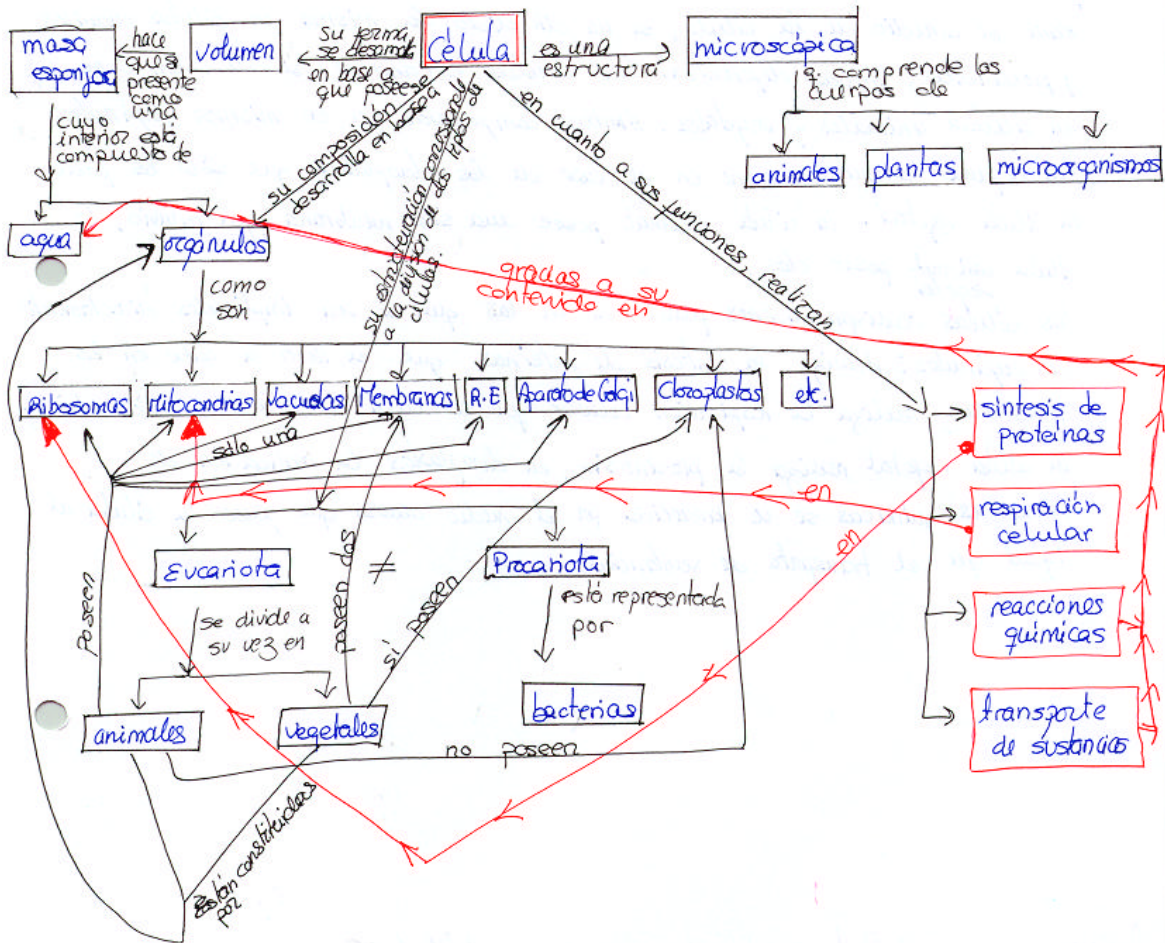 masa
esponjosa
hace
que se
presente
como
una
volumen
su forma
se desarrolla
en base a
que poseese
Célula
es una
estructura
microscópica
q. comprende los
cuerpos de
animales
plantas
microorganismos
cuyo
interior está
compuesto de
agua
orgánulos
su composición se
desarrolla en base a
su estructuración corresponde
a la división de dos tipos de
células.
en cuanto a sus funciones, realizan
gracias a su
contenido en
como
son
Ribosomas
Mitocondrias
Vacuolas
Membranas
R.E
Aparato de Golgi
Cloroplastos
etc.
sólo una
síntesis de
proteínas
en
respiración
celular
en
reacciones
químicas
transporte
de sustancias
Eucariota
≠
Procariota
se divide a
su vez en
está representada
por
bacterias
Poseen
poseen dos
sí poseen
animales
vegetales
no poseen
Están constituidas
por